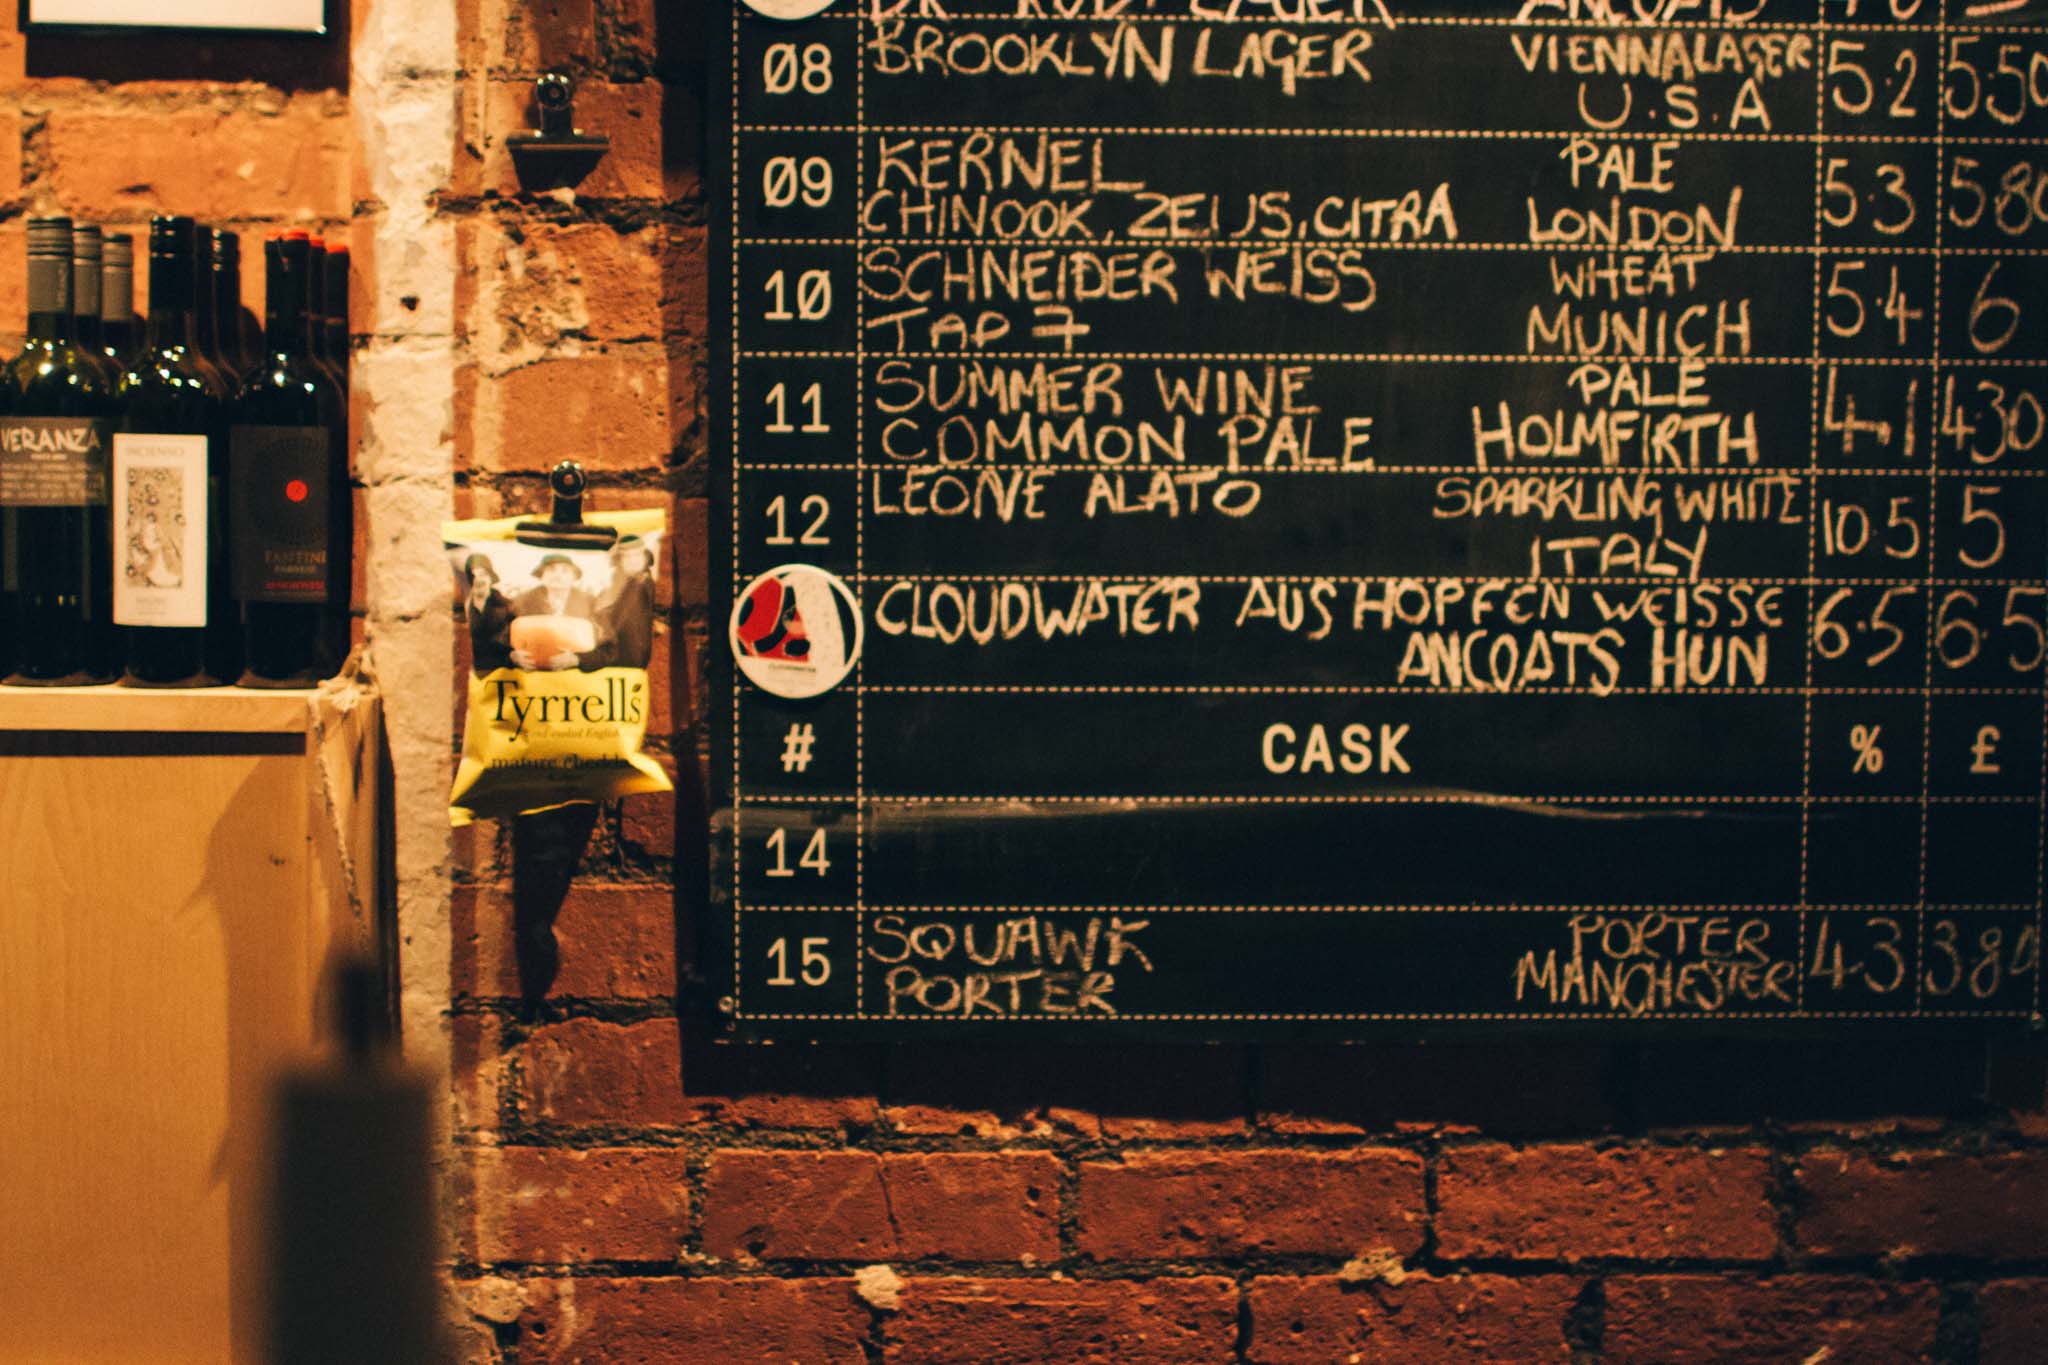 LAGER ANCOATS
08 BROOKLYN LAGER VIENNA LAGER 5.2 5.50
U.S.A
09 KERNEL PALE 5.3 5.80
CHINOOK, ZEUS, CITRA LONDON
10 SCHNEIDER WEISS WHEAT 5.4 6
TAP 7 MUNICH
11 SUMMER WINE PALE 4.1 4.30
COMMON PALE HOLMFIRTH
12 LEONE ALATO SPARKLING WHITE 10.5 5
ITALY
CLOUDWATER AUS HOPFEN WEISSE 6.5 6.5
ANCOATS HUN
# CASK % £
14
15 SQUAWK PORTER 4.3 3.80
PORTER MANCHESTER
VERANZA
INCENSO
FANTINI
FARNESE
SANGIOVESE
Tyrrell's
English
mature chedd